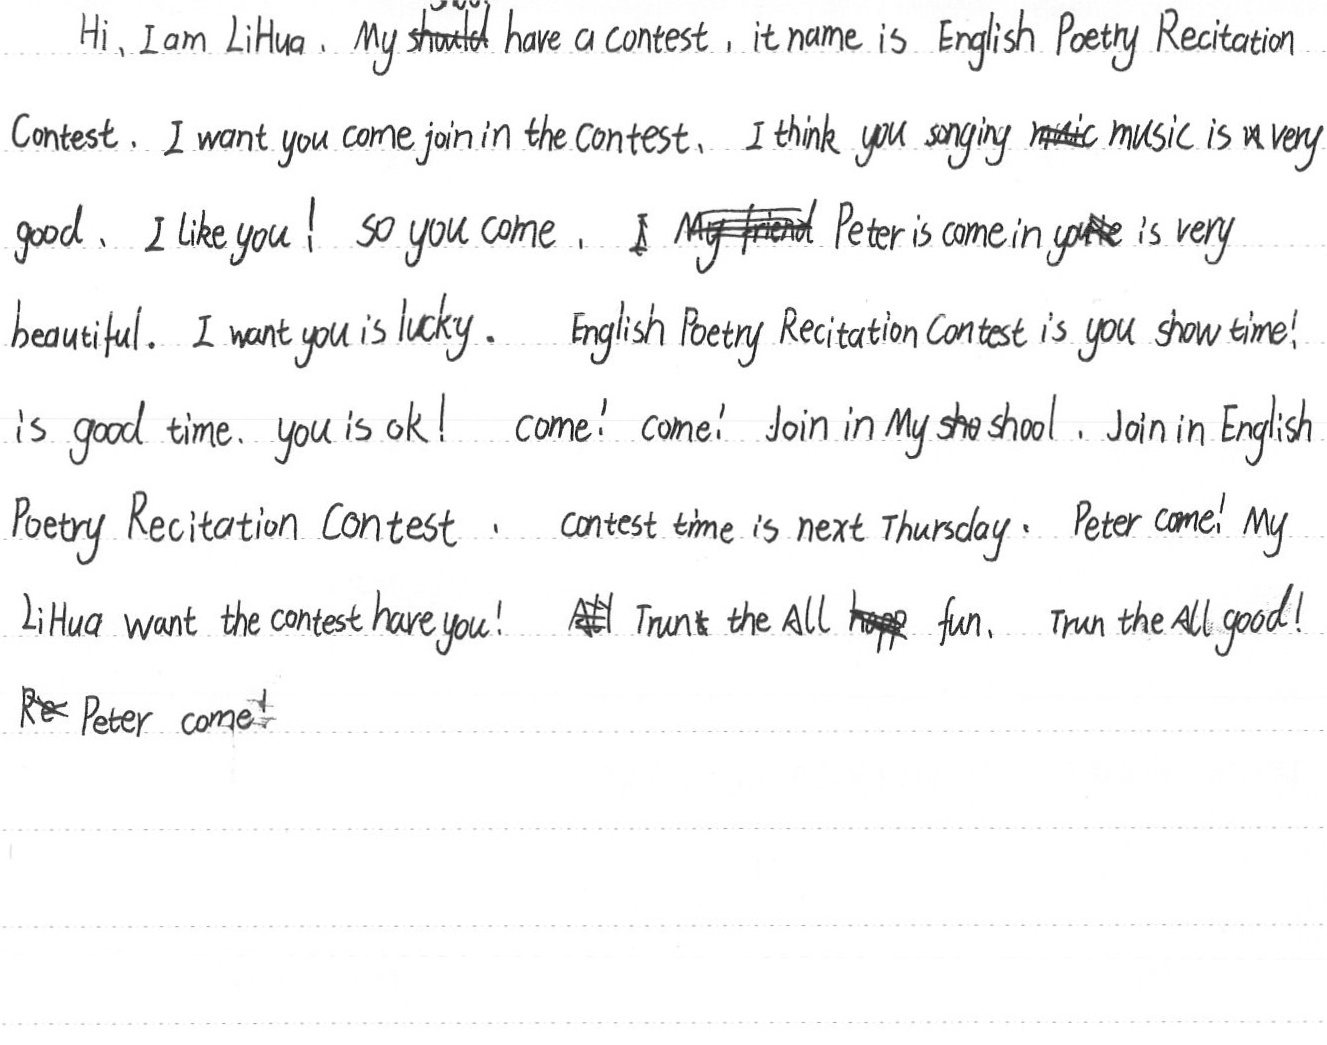 Hi, I am LiHua. My have a contest, it name is English Poetry Recitation
Contest. I want you come join in the contest. I think you singing music is very
good. I like you! so you come. I Peter is come in you is very
beautiful. I want you is lucky. English Poetry Recitation Contest is you show time!
is good time. you is ok! come! come! Join in My shool. Join in English
Poetry Recitation Contest. contest time is next Thursday. Peter come! My
LiHua want the contest have you! Trun the All fun. Trun the All good!
Peter come!